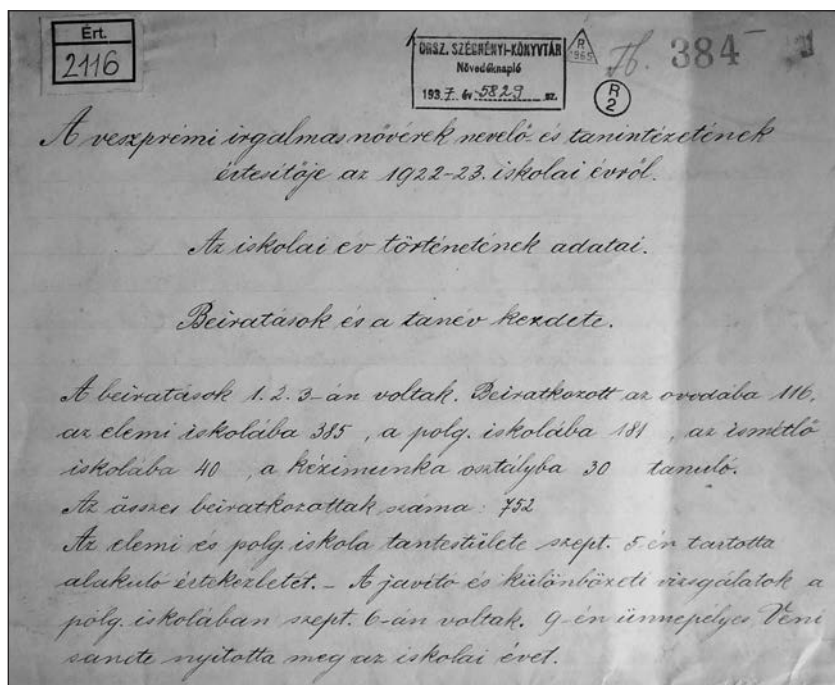 Ért.
2116
ORSZ. SZÉCHÉNYI-KÖNYVTÁR
Növedéknapló
1937. év 5829 sz.
R
1965
R
2
384
A veszprémi irgalmas nővérek nevelő- és tanintézetének
értesítője az 1922-23. iskolai évről.
Az iskolai év történetének adatai.
Beiratások és a tanév kezdete.
A beiratások 1. 2. 3-án voltak. Beiratkozott az ovodába 116,
az elemi iskolába 385, a polg. iskolába 181, az ismétlő
iskolába 40, a kézimunka osztályba 30 tanuló.
Az összes beiratkozottak száma: 752
Az elemi és polg. iskola tantestülete szept. 5-én tartotta
alakuló értekezletét. - A javító és különbözeti vizsgálatok a
polg. iskolában szept. 6-án voltak. 9-én ünnepélyes Veni
sancte nyitotta meg az iskolai évet.